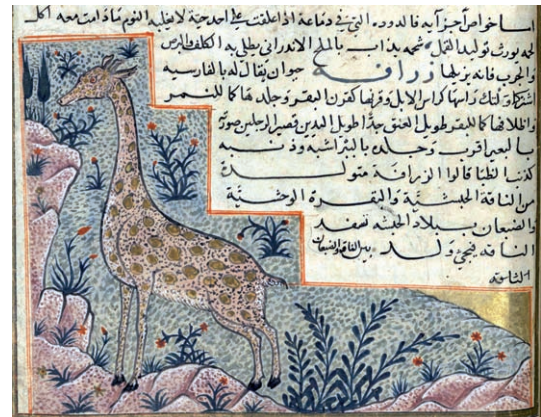 اما خواص اجزآيه فالدودة التى فى دماغه اذا علقت على احد حية لا يغلبه النوم ما دامت معه اكل
لحمه يورث توليد القمل شحمه يذاب بالملح الاندرانى يطلى به الكلف والبرص
والجرب فانه يزيلها زرافة حيوان يقال له بالفارسيه
اشتركاو پلنك راسها كراس الابل وقرنها كقرن البقر وجلدها كما للنمر
واظلافها كما للبقر طويل العنق جدا طويل اليدين قصير الرجلين صورته
بالبعير اقرب وجلده بالببر اشبه وذنبه
كذنب الظبا قالوا الزرافة متولدة
من الناقة الحبشية والبقرة الوحشية
والضبعان ببلاد الحبشه تسفد
الناقه فيجئ ولد بين الناقه والضبعان